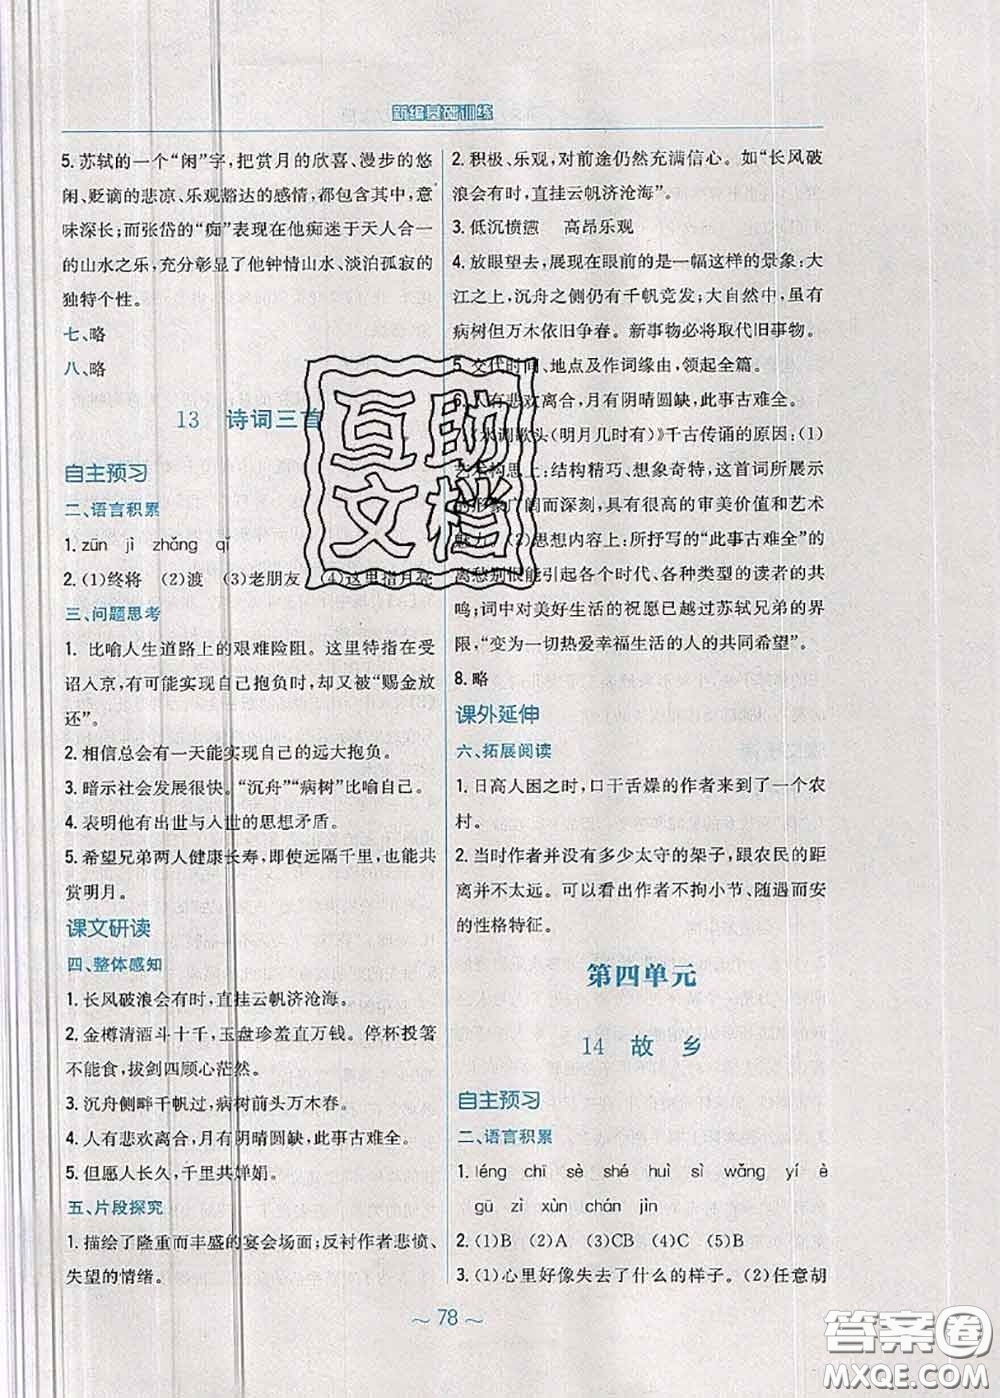 新编基础训练
5. 苏轼的一个“闲”字，把赏月的欣喜、漫步的悠
闲、贬谪的悲凉、乐观豁达的感情，都包含其中，意
味深长；而张岱的“痴”表现在他痴迷于天人合一
的山水之乐，充分彰显了他钟情山水、淡泊孤寂的
独特个性。
七、略
八、略
13 诗词三首
自主预习
二、语言积累
1. zūn jì zhǎng qí
2. (1)终将 (2)渡 (3)老朋友 (4)这里指月亮
三、问题思考
1. 比喻人生道路上的艰难险阻。这里特指在受
诏入京，有可能实现自己抱负时，却又被“赐金放
还”。
2. 相信总会有一天能实现自己的远大抱负。
3. 暗示社会发展很快。“沉舟”“病树”比喻自己。
4. 表明他有出世与入世的思想矛盾。
5. 希望兄弟两人健康长寿，即使远隔千里，也能共
赏明月。
课文研读
四、整体感知
1. 长风破浪会有时，直挂云帆济沧海。
2. 金樽清酒斗十千，玉盘珍羞直万钱。停杯投箸
不能食，拔剑四顾心茫然。
3. 沉舟侧畔千帆过，病树前头万木春。
4. 人有悲欢离合，月有阴晴圆缺，此事古难全。
5. 但愿人长久，千里共婵娟。
五、片段探究
1. 描绘了隆重而丰盛的宴会场面；反衬作者悲愤、
失望的情绪。
2. 积极、乐观，对前途仍然充满信心。如“长风破
浪会有时，直挂云帆济沧海”。
3. 低沉愤懑 高昂乐观
4. 放眼望去，展现在眼前的是一幅这样的景象：大
江之上，沉舟之侧仍有千帆竞发；大自然中，虽有
病树但万木依旧争春。新事物必将取代旧事物。
5. 交代时间、地点及作词缘由，领起全篇。
6. 人有悲欢离合，月有阴晴圆缺，此事古难全。
《水调歌头（明月几时有）》千古传诵的原因：(1)
艺术构思上：结构精巧、想象奇特，这首词所展示
的形象广阔而深刻，具有很高的审美价值和艺术
魅力。(2)思想内容上：所抒写的“此事古难全”的
离愁别恨能引起各个时代、各种类型的读者的共
鸣；词中对美好生活的祝愿已越过苏轼兄弟的界
限，“变为一切热爱幸福生活的人的共同希望”。
8. 略
课外延伸
六、拓展阅读
1. 日高人困之时，口干舌燥的作者来到了一个农
村。
2. 当时作者并没有多少太守的架子，跟农民的距
离并不太远。可以看出作者不拘小节、随遇而安
的性格特征。
第四单元
14 故 乡
自主预习
二、语言积累
1. léng chī sè shé huì sì wǎng yí è
gū zì xùn chán jìn
2. (1)B (2)A (3)CB (4)CA (5)B
3. (1)心里好像失去了什么的样子。(2)任意胡
～ 78 ～
互助文档
答案圈
MXQE.COM